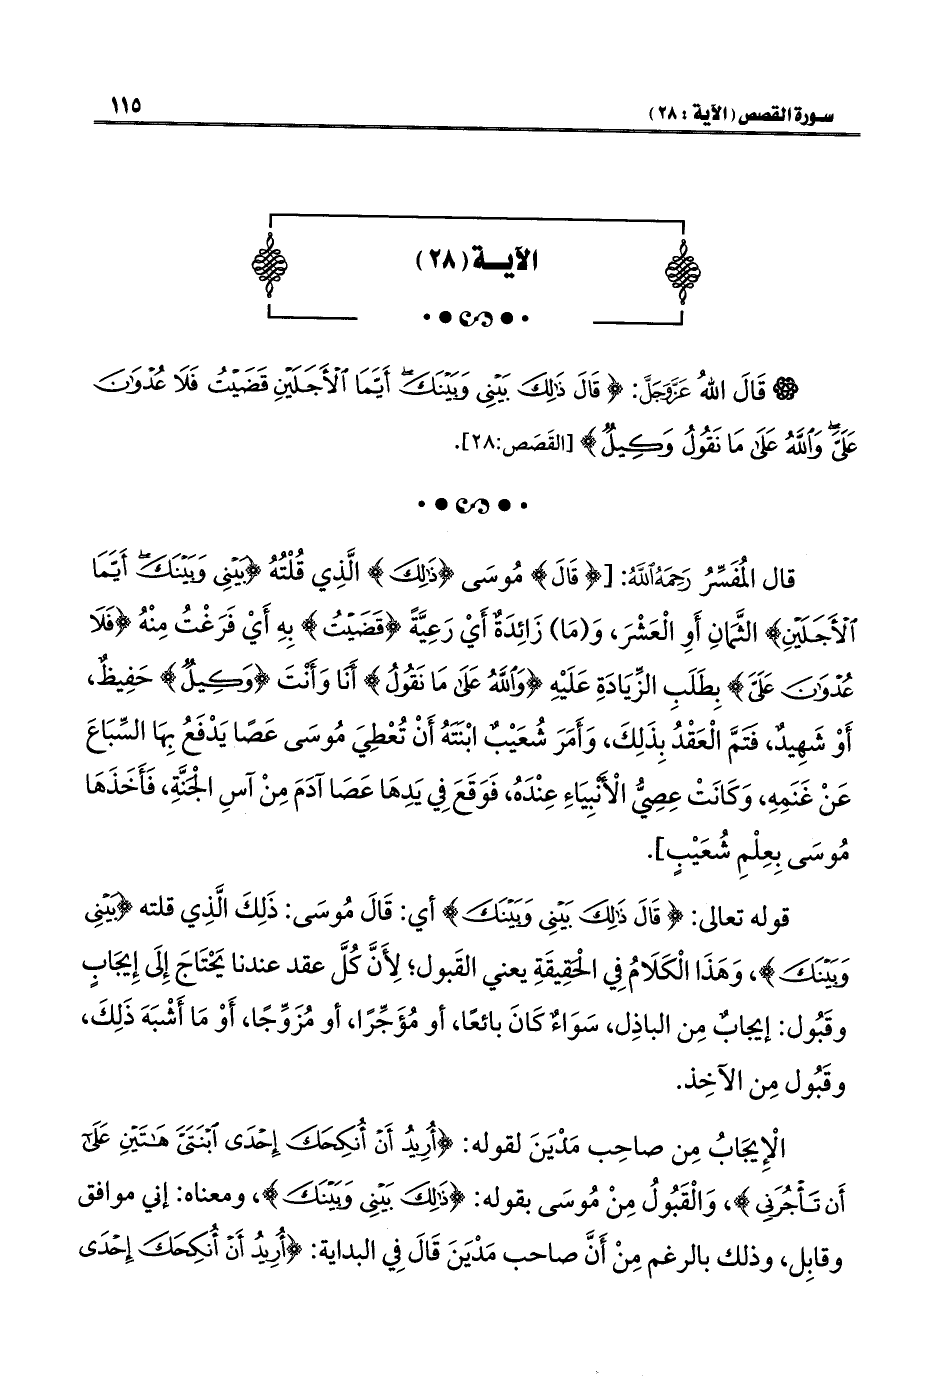 سورة القصص (الآية : ٢٨)
١١٥
الآيـــة (٢٨)
قَالَ اللهُ عَزَّوَجَلَّ: ﴿ قَالَ ذَٰلِكَ بَيْنِي وَبَيْنَكَ ۖ أَيَّمَا ٱلْأَجَلَيْنِ قَضَيْتُ فَلَا عُدْوَٰنَ
عَلَيَّ ۖ وَٱللَّهُ عَلَىٰ مَا نَقُولُ وَكِيلٌ ﴾ [القَصَص:٢٨].
قال المُفَسِّرُ رَحِمَهُ اللَّهُ: [﴿ قَالَ ﴾ مُوسَى ﴿ذَٰلِكَ ﴾ الَّذِي قُلْتَهُ ﴿بَيْنِي وَبَيْنَكَ ۖ أَيَّمَا
ٱلْأَجَلَيْنِ﴾ الثَّمَانِ أَوِ الْعَشْرَ، وَ(مَا) زَائِدَةٌ أَيْ رَعِيَّةً ﴿قَضَيْتُ ﴾ بِهِ أَيْ فَرَغْتُ مِنْهُ ﴿فَلَا
عُدْوَٰنَ عَلَيَّ ﴾ بِطَلَبِ الزِّيَادَةِ عَلَيْهِ ﴿وَٱللَّهُ عَلَىٰ مَا نَقُولُ ﴾ أَنَا وَأَنْتَ ﴿وَكِيلٌ ﴾ حَفِيظٌ،
أَوْ شَهِيدٌ، فَتَمَّ الْعَقْدُ بِذَلِكَ، وَأَمَرَ شُعَيْبٌ ابْنَتَهُ أَنْ تُعْطِيَ مُوسَى عَصًا يَدْفَعُ بِهَا السِّبَاعَ
عَنْ غَنَمِهِ، وَكَانَتْ عِصِيُّ الْأَنْبِيَاءِ عِنْدَهُ، فَوَقَعَ فِي يَدِهَا عَصَا آدَمَ مِنْ آسِ الْجَنَّةِ، فَأَخَذَهَا
مُوسَى بِعِلْمِ شُعَيْبٍ].
قوله تعالى: ﴿ قَالَ ذَٰلِكَ بَيْنِي وَبَيْنَكَ ﴾ أي: قَالَ مُوسَى: ذَلِكَ الَّذِي قلته ﴿بَيْنِي
وَبَيْنَكَ ﴾، وَهَذَا الْكَلَامُ فِي الْحَقِيقَةِ يعني القَبول؛ لِأَنَّ كُلَّ عقد عندنا يَحْتَاج إِلَى إِيجَابٍ
وقَبُول: إيجابٌ مِن الباذِل، سَوَاءٌ كَانَ بائعًا، أو مُؤَجِّرًا، أو مُزَوِّجًا، أَوْ مَا أَشْبَهَ ذَلِكَ،
وقَبُول مِن الآخِذ.
الْإِيجَابُ مِن صاحِب مَدْيَنَ لقوله: ﴿أُرِيدُ أَنْ أُنكِحَكَ إِحْدَى ٱبْنَتَيَّ هَٰتَيْنِ عَلَىٰٓ
أَن تَأْجُرَنِي ﴾، وَالْقَبُولُ مِنْ مُوسَى بقوله: ﴿ذَٰلِكَ بَيْنِي وَبَيْنَكَ ﴾، ومعناه: إني موافق
وقابِل، وذلك بالرغم مِنْ أَنَّ صاحب مَدْيَنَ قَالَ فِي البداية: ﴿أُرِيدُ أَنْ أُنكِحَكَ إِحْدَى